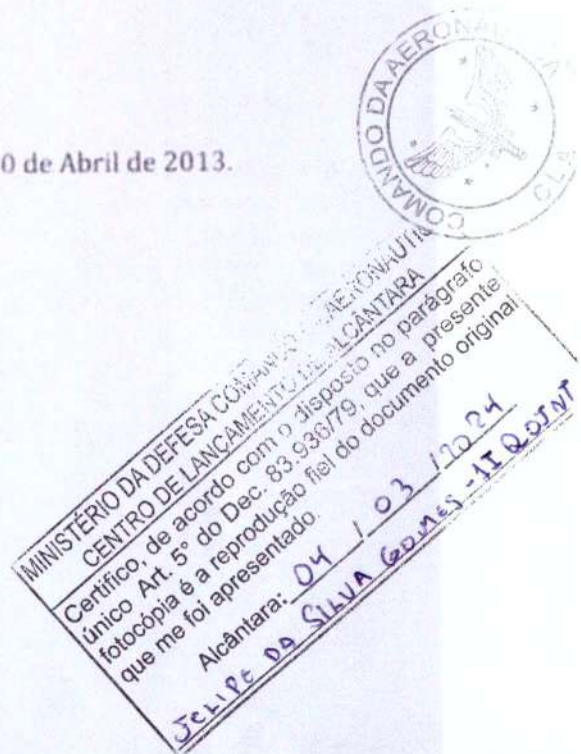 COMANDO DA AERONÁUTICA
CLA
0 de Abril de 2013.
MINISTÉRIO DA DEFESA COMANDO AERONAUTIC
CENTRO DE LANÇAMENTO DE ALCÂNTARA
Certifico, de acordo com o disposto no parágrafo
único Art. 5° do Dec. 83.936/79, que a presente
fotocópia é a reprodução fiel do documento original
que me foi apresentado.
Alcântara: 04 / 03 / 2024
DA SILVA GOMES - 1T QOINT